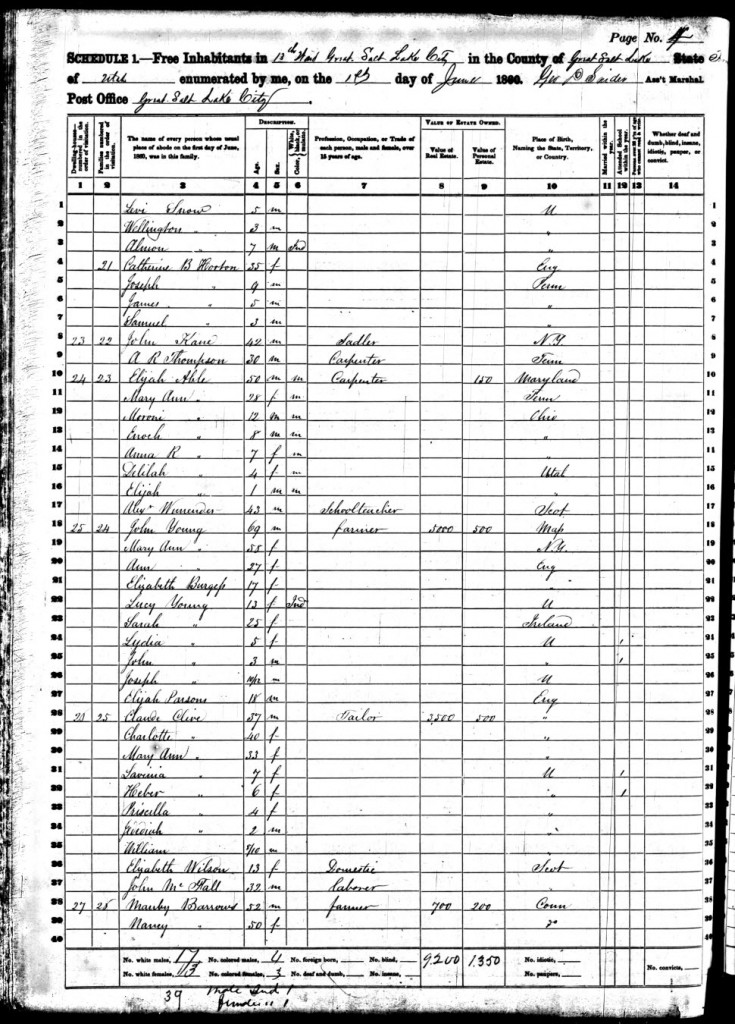 Page No. 4
SCHEDULE 1.—Free Inhabitants in 13th Ward Great Salt Lake City in the County of Great Salt Lake State
of Utah enumerated by me, on the 1st day of June 1860. Ass't Marshal.
Post Office Great Salt Lake City
Dwelling-houses numbered in the order of visitation. Families numbered in the order of visitation. The name of every person whose usual place of abode on the first day of June, 1860, was in this family. DESCRIPTION. Age. Sex. Color, White, black, or mulatto. Profession, Occupation, or Trade of each person, male and female, over 15 years of age. VALUE OF ESTATE OWNED. Value of Real Estate. Value of Personal Estate. Place of Birth, Naming the State, Territory, or Country. Married within the year. Attended School within the year. Persons over 20 y'rs of age who cannot read & write. Whether deaf and dumb, blind, insane, idiotic, pauper, or convict.
1 2 3 4 5 6 7 8 9 10 11 12 13 14
1 Levi Snow 5 m U 1
2 Wellington " 3 m " 2
3 Almon " 7 m Ind " 3
4 21 Catherine B Horton 35 f Eng 4
5 Joseph " 9 m Penn 5
6 James " 5 m " 6
7 Samuel " 3 m " 7
8 23 22 John Kane 42 m Sadler N.Y. 8
9 A R Thompson 30 m Carpenter Tenn 9
10 24 23 Elijah Able 50 m m Carpenter 150 Maryland 10
11 Mary Ann " 28 f m Tenn 11
12 Moroni " 12 m m Ohio 12
13 Enoch " 8 m m " 13
14 Anna R " 7 f m " 14
15 Delilah " 4 f m Utah 15
16 Elijah " 1 m m " 16
17 43 m Schoolteacher Scot 17
18 25 24 John Young 69 m farmer 5000 500 Mass 18
19 Mary Ann " 55 f N.Y. 19
20 Ann " 27 f Eng 20
21 Elizabeth Burgess 17 f " 21
22 Lucy Young 13 f Ind U 22
23 Sarah " 25 f Ireland 23
24 Lydia " 5 f U 1 24
25 John " 3 m " 1 25
26 Joseph " m U 26
27 Elijah Parsons 18 m Eng 27
28 25 Claude Clive 37 m Tailor 3,500 500 " 28
29 Charlotte " 40 f " 29
30 Mary Ann " 33 f " 30
31 Lavinia " 7 f U 1 31
32 Heber " 6 f " 1 32
33 Priscilla " 4 f " 33
34 " 2 m " 34
35 William " m " 35
36 Elizabeth Wilson 13 f Domestic Scot 36
37 John Mc Fall 32 m laborer " 37
38 27 Manly Barrows 52 m farmer 700 200 Conn 38
39 Nancy " 50 f 39
40 40
No. white males, 17 No. colored males, 4 No. foreign born, No. blind, 9200 1.350 No. idiotic, No. convicts,
No. white females, 13 No. colored females, 3 No. deaf and dumb, No. insane, No. paupers,
39 Male Ind 1